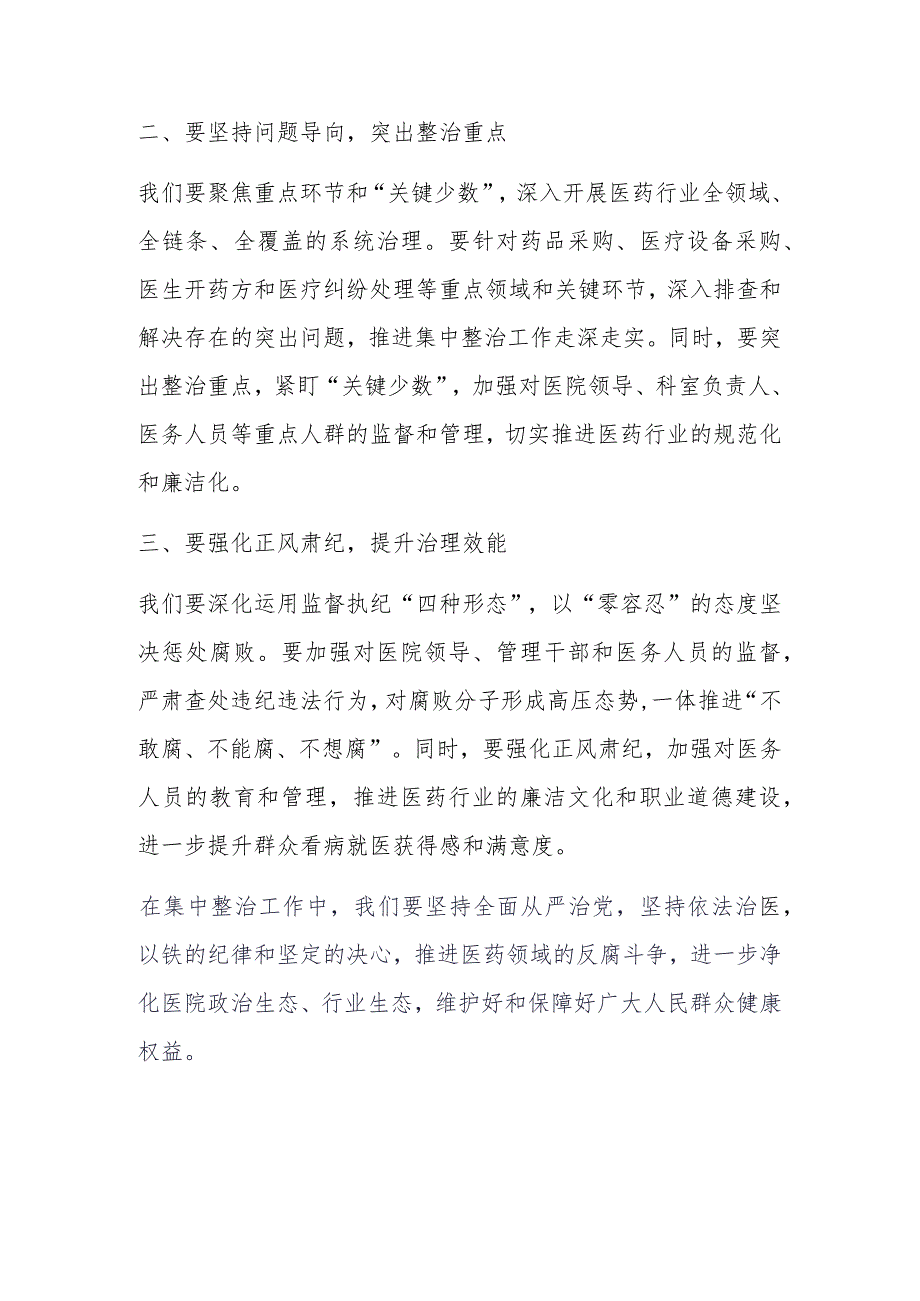 二、要坚持问题导向，突出整治重点
我们要聚焦重点环节和“关键少数”，深入开展医药行业全领域、
全链条、全覆盖的系统治理。要针对药品采购、医疗设备采购、
医生开药方和医疗纠纷处理等重点领域和关键环节，深入排查和
解决存在的突出问题，推进集中整治工作走深走实。同时，要突
出整治重点，紧盯“关键少数”，加强对医院领导、科室负责人、
医务人员等重点人群的监督和管理，切实推进医药行业的规范化
和廉洁化。
三、要强化正风肃纪，提升治理效能
我们要深化运用监督执纪“四种形态”，以“零容忍”的态度坚
决惩处腐败。要加强对医院领导、管理干部和医务人员的监督，
严肃查处违纪违法行为，对腐败分子形成高压态势,一体推进“不
敢腐、不能腐、不想腐”。同时，要强化正风肃纪，加强对医务
人员的教育和管理，推进医药行业的廉洁文化和职业道德建设，
进一步提升群众看病就医获得感和满意度。
在集中整治工作中，我们要坚持全面从严治党，坚持依法治医，
以铁的纪律和坚定的决心，推进医药领域的反腐斗争，进一步净
化医院政治生态、行业生态，维护好和保障好广大人民群众健康
权益。